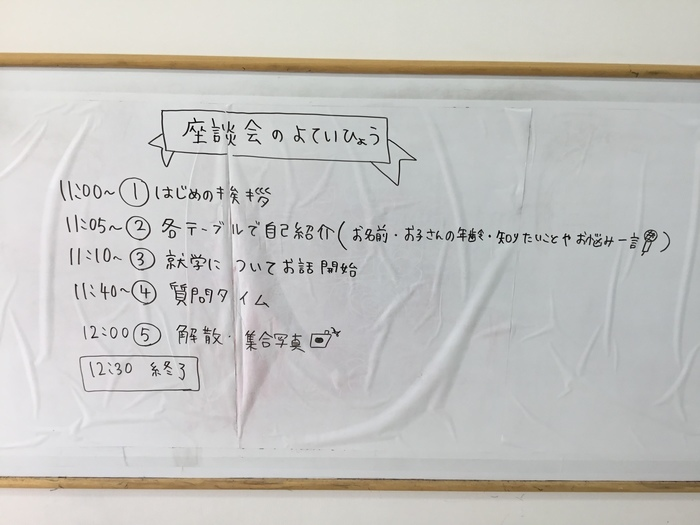 座談会のよていひょう
11:00〜① はじめの挨拶
11:05〜② 各テーブルで自己紹介(お名前・お子さんの年齢・知りたいことやお悩み一言)
11:10〜③ 就学についてお話開始
11:40〜④ 質問タイム
12:00⑤ 解散・集合写真
12:30 終了